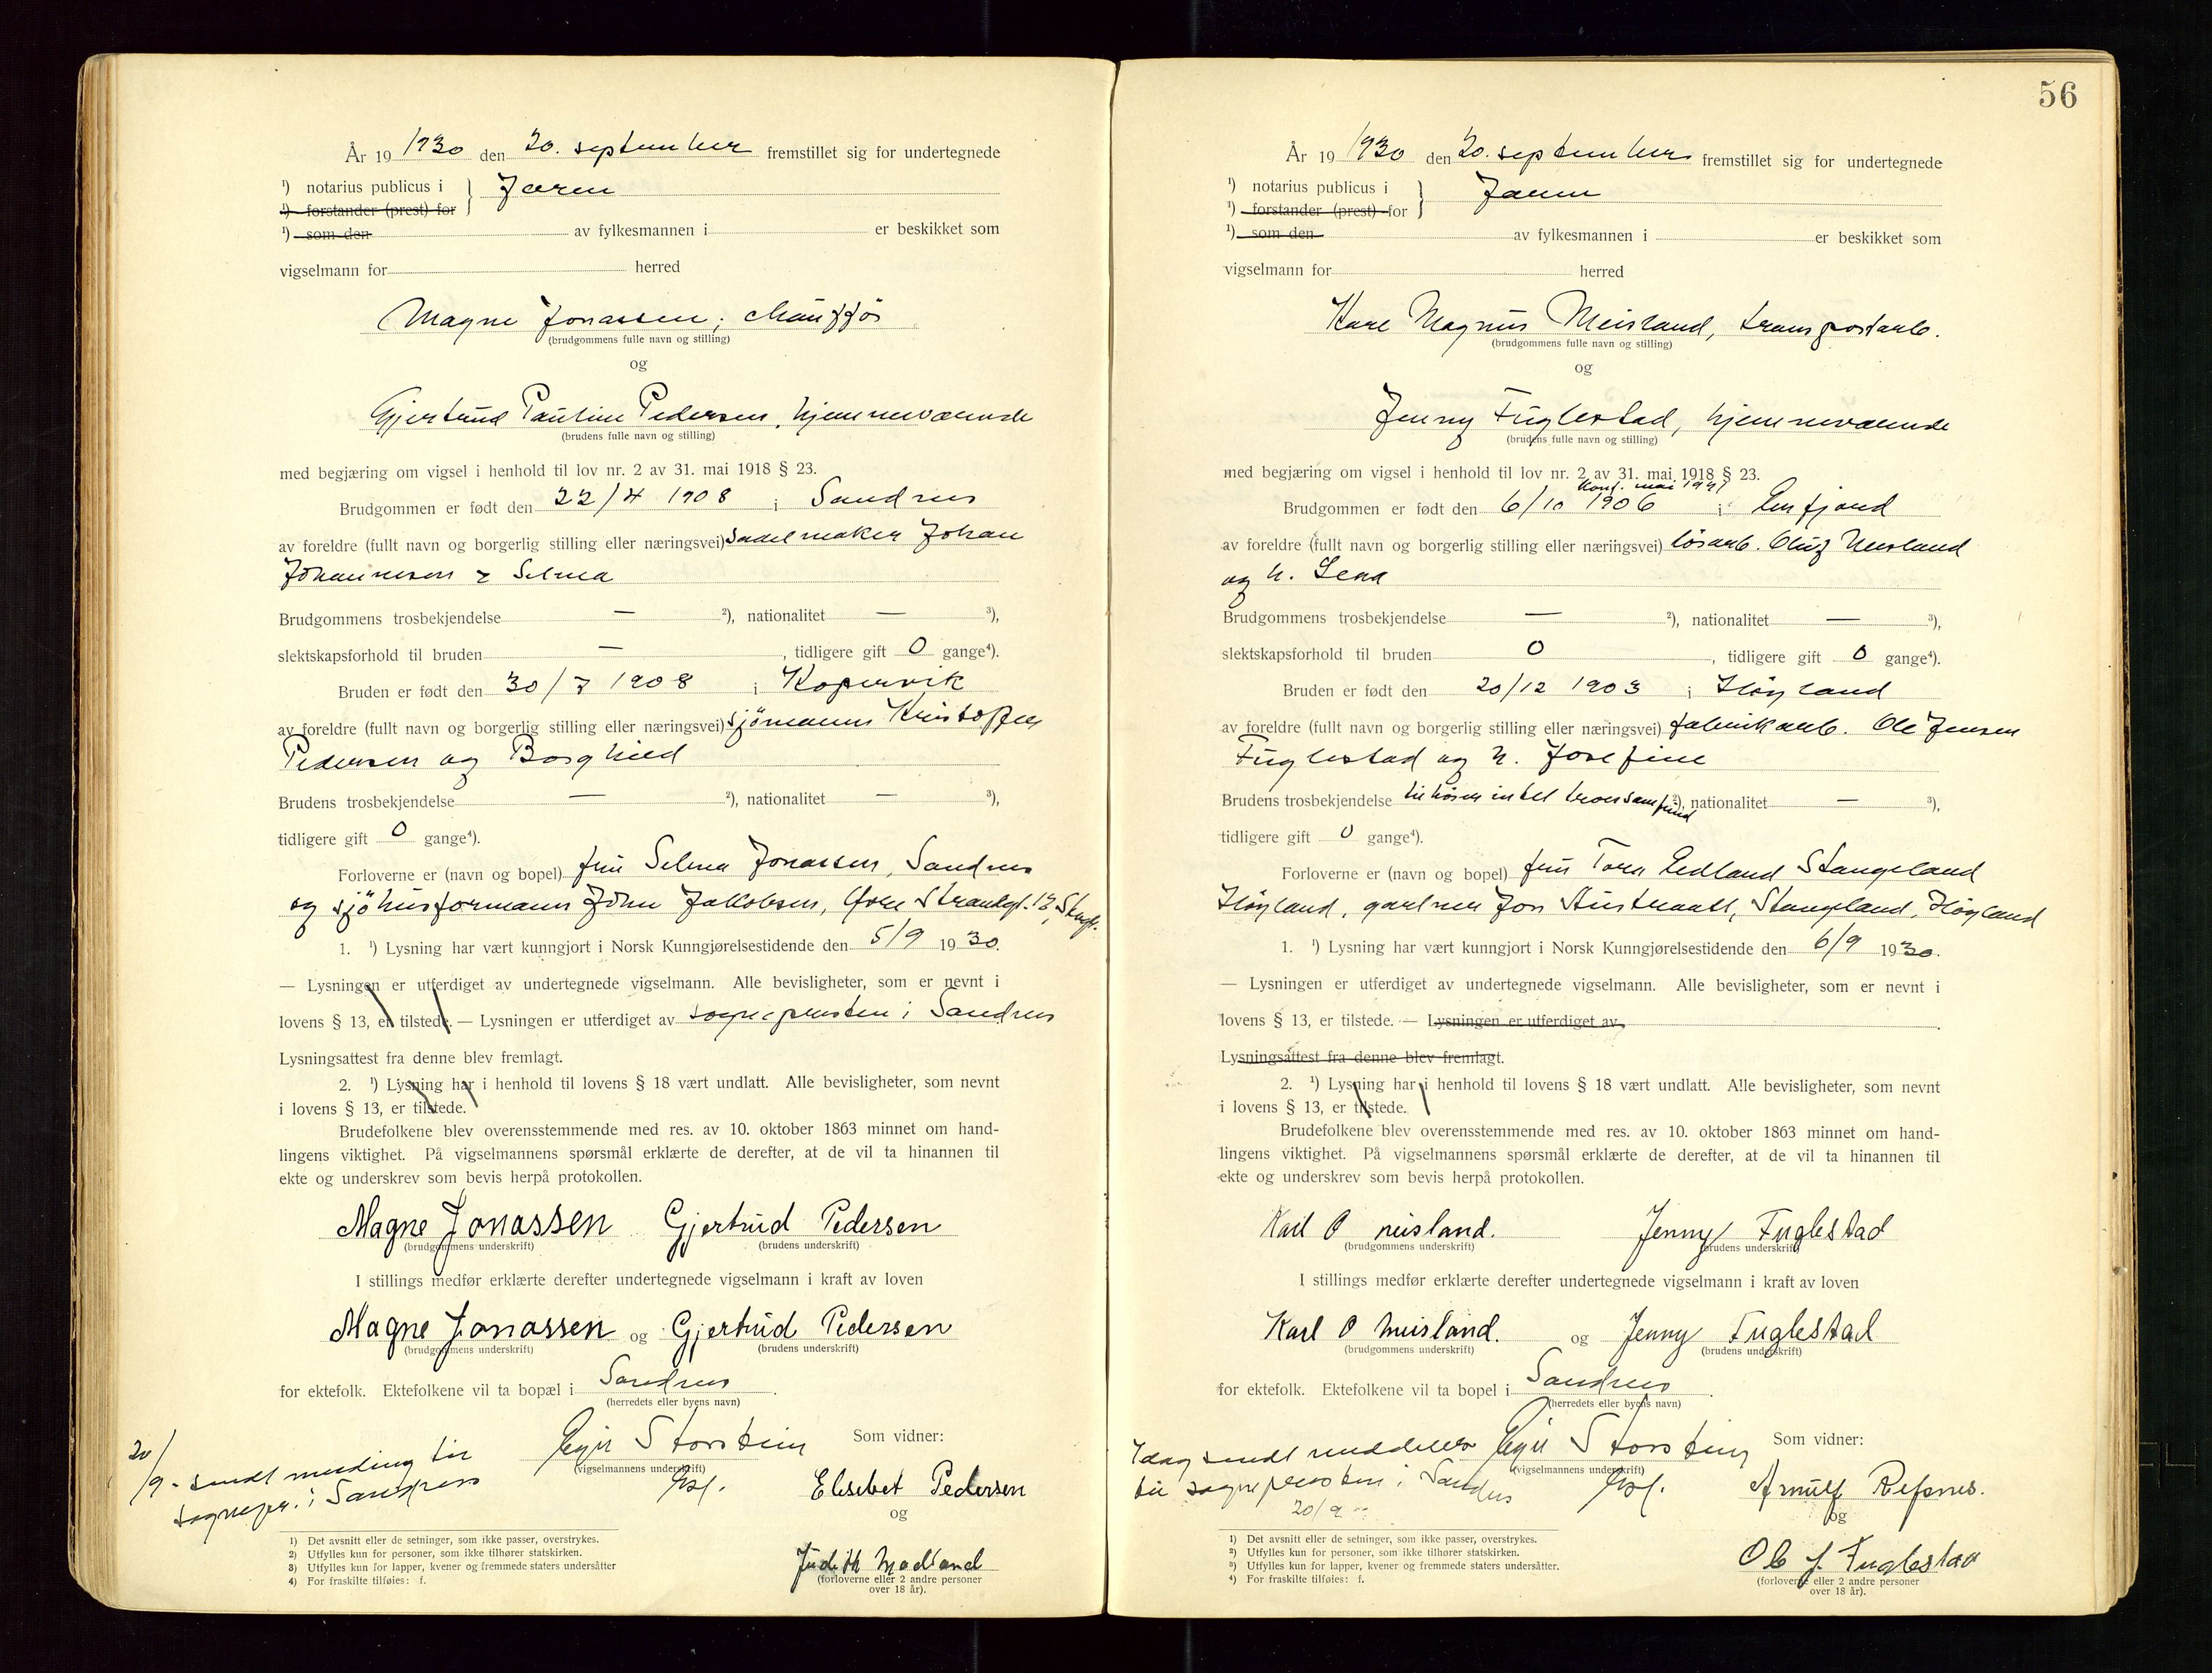 År 19 1930 den 20. september fremstillet sig for undertegnede
1) notarius publicus i } Jæren
1) forstander (prest) for
1) som den av fylkesmannen i er beskikket som
vigselmann for herred
Magne Jonassen, chauffør
(brudgommens fulle navn og stilling)
og
Gjertrud Pauline Pedersen, hjemmeværende
(brudens fulle navn og stilling)
med begjæring om vigsel i henhold til lov nr. 2 av 31. mai 1918 § 23.
Brudgommen er født den 22/4 1908 i Sandnes
av foreldre (fullt navn og borgerlig stilling eller næringsvei) sadelmaker Johan
Johannesen & Selma
Brudgommens trosbekjendelse — 2), nationalitet — 3),
slektskapsforhold til bruden —, tidligere gift 0 gange4).
Bruden er født den 30/7 1908 i Kopervik
av foreldre (fullt navn og borgerlig stilling eller næringsvei) sjömann Kristoffer
Pedersen og Borghild
Brudens trosbekjendelse — 2), nationalitet — 3),
tidligere gift 0 gange4).
Forloverne er (navn og bopel) fru Selma Jonassen, Sandnes
og sjöhusformann John Jakobsen, Øvre Strandgt. 12,
1. 1) Lysning har vært kunngjort i Norsk Kunngjørelsestidende den 5/9 1930.
— Lysningen er utferdiget av undertegnede vigselmann. Alle bevisligheter, som er nevnt i
lovens § 13, er tilstede. — Lysningen er utferdiget av sognepresten i Sandnes
Lysningsattest fra denne blev fremlagt.
2. 1) Lysning har i henhold til lovens § 18 vært undlatt. Alle bevisligheter, som nevnt
i lovens § 13, er tilstede.
Brudefolkene blev overensstemmende med res. av 10. oktober 1863 minnet om hand-
lingens viktighet. På vigselmannens spørsmål erklærte de derefter, at de vil ta hinannen til
ekte og underskrev som bevis herpå protokollen.
Magne Jonassen Gjertrud Pedersen
(brudgommens underskrift) (brudens underskrift)
I stillings medfør erklærte derefter undertegnede vigselmann i kraft av loven
Magne Jonassen og Gjertrud Pedersen
(brudgommens underskrift) (brudens underskrift)
for ektefolk. Ektefolkene vil ta bopæl i Sandnes.
(herredets eller byens navn)
Egil Storstein Som vidner:
(vigselmannens underskrift)
20/9 - sendt melding til
sognepr. i Sandnes
Elisebet Pedersen
og
Judith Madland
(forloverne eller 2 andre personer
over 18 år).
1) Det avsnitt eller de setninger, som ikke passer, overstrykes.
2) Utfylles kun for personer, som ikke tilhører statskirken.
3) Utfylles kun for lapper, kvener og fremmede staters undersåtter
4) For fraskilte tilføies: f.
56
År 19 1930 den 20. september fremstillet sig for undertegnede
1) notarius publicus i } Jæren
1) forstander (prest) for
1) som den av fylkesmannen i er beskikket som
vigselmann for herred
Karl Magnus Meisland, transportarb.
(brudgommens fulle navn og stilling)
og
Jenny Fuglestad, hjemmeværende
(brudens fulle navn og stilling)
med begjæring om vigsel i henhold til lov nr. 2 av 31. mai 1918 § 23.
Konf. mai 1921
Brudgommen er født den 6/10 1906 i
av foreldre (fullt navn og borgerlig stilling eller næringsvei) løsarb. Oluf Meisland
og h. Lena
Brudgommens trosbekjendelse — 2), nationalitet — 3),
slektskapsforhold til bruden 0, tidligere gift 0 gange4).
Bruden er født den 20/12 1903 i Høyland
av foreldre (fullt navn og borgerlig stilling eller næringsvei) fabrikarb. Ole Jensen
Fuglestad og h. Josefine
Brudens trosbekjendelse tilhører intet trossamfund 2), nationalitet — 3),
tidligere gift 0 gange4).
Forloverne er (navn og bopel) fru Tora Eidland Stangeland
Høyland, gartner Jon Austraatt, Stangeland, Høyland
1. 1) Lysning har vært kunngjort i Norsk Kunngjørelsestidende den 6/9 1930.
— Lysningen er utferdiget av undertegnede vigselmann. Alle bevisligheter, som er nevnt i
lovens § 13, er tilstede. — Lysningen er utferdiget av
Lysningsattest fra denne blev fremlagt.
2. 1) Lysning har i henhold til lovens § 18 vært undlatt. Alle bevisligheter, som nevnt
i lovens § 13, er tilstede.
Brudefolkene blev overensstemmende med res. av 10. oktober 1863 minnet om hand-
lingens viktighet. På vigselmannens spørsmål erklærte de derefter, at de vil ta hinannen til
ekte og underskrev som bevis herpå protokollen.
Karl O meisland. Jenny Fuglestad
(brudgommens underskrift) (brudens underskrift)
I stillings medfør erklærte derefter undertegnede vigselmann i kraft av loven
Karl O meisland. og Jenny Fuglestad
(brudgommens underskrift) (brudens underskrift)
for ektefolk. Ektefolkene vil ta bopel i Sandnes.
(herredets eller byens navn)
Egil Storstein Som vidner:
(vigselmannens underskrift)
Idag sendt meddelelse
til sognepresten i Sandnes
20/9
Arnulf Refsnes.
og
Ole J. Fuglestad
(forloverne eller 2 andre personer
over 18 år).
1) Det avsnitt eller de setninger, som ikke passer, overstrykes.
2) Utfylles kun for personer, som ikke tilhører statskirken.
3) Utfylles kun for lapper, kvener og fremmede staters undersåtter.
4) For fraskilte tilføies: f.